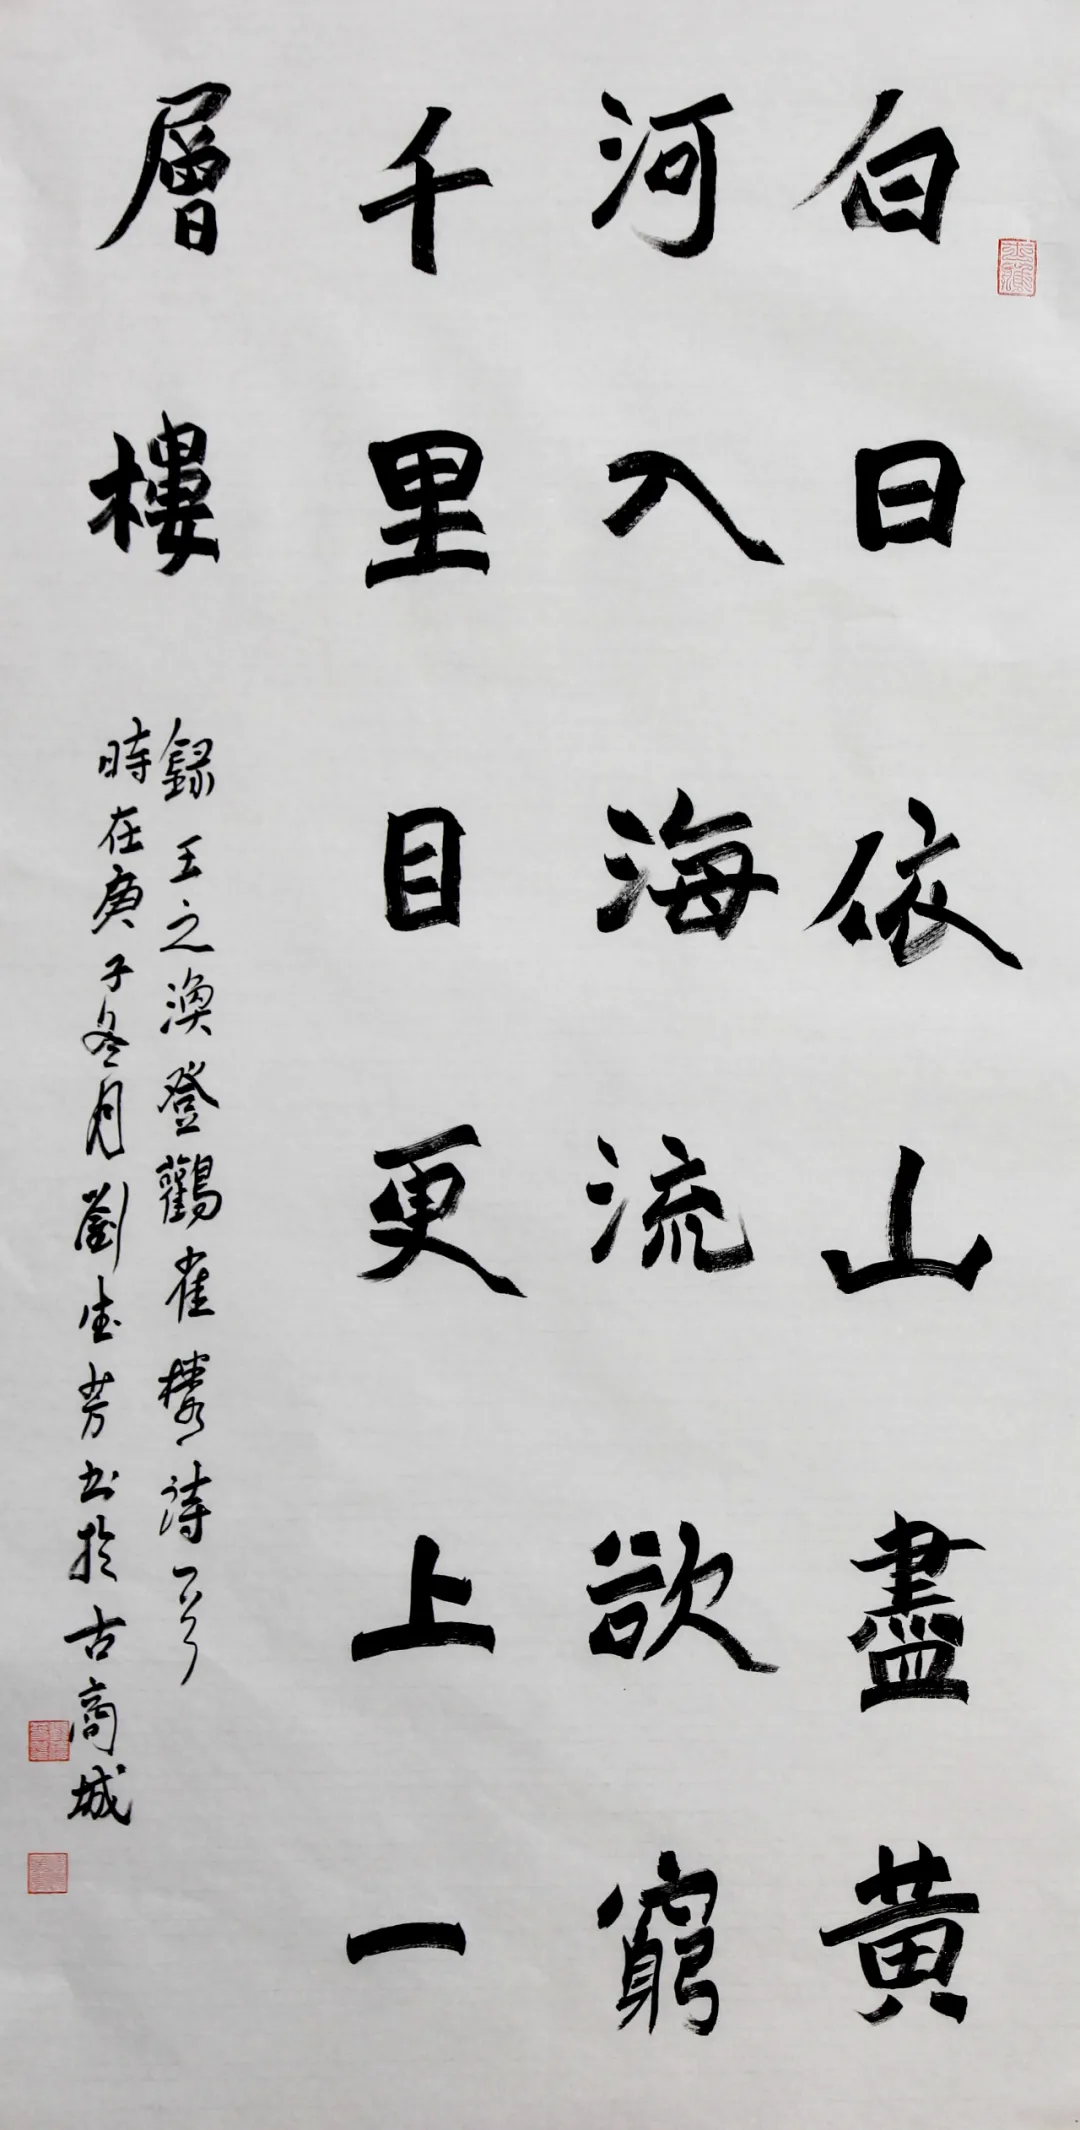 白日依山盡黄
河入海流欲窮
千里目更上一
層樓
錄王之渙登鸛雀樓詩一首
時在庚子冬月劉生芳书於古商城